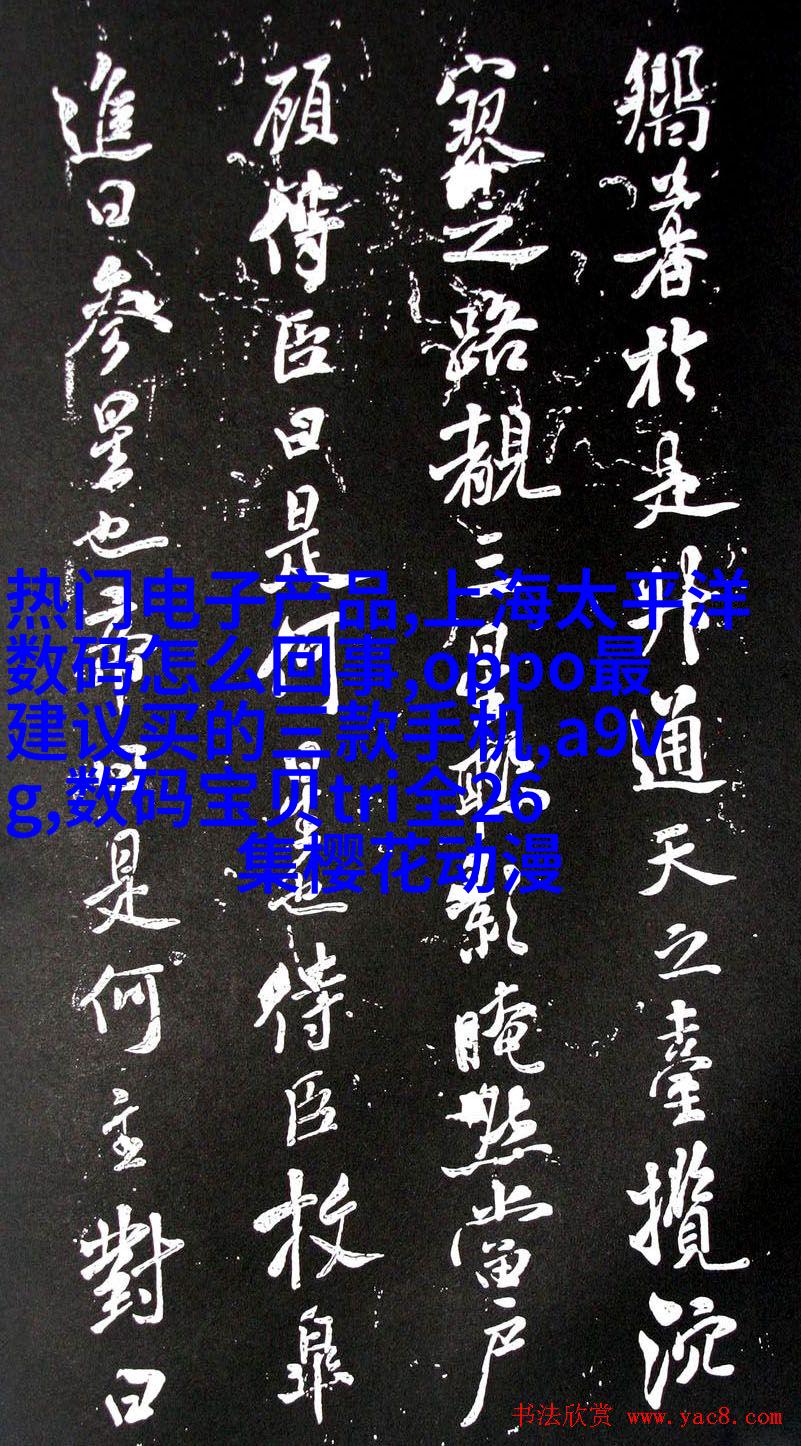 鄉暮於是升通天之臺攬沉
寥之路覩三星晻影晻然當戶
顧侍臣曰是何星也侍臣枚皋
進曰參星也帝曰是何主對曰
热门电子产品,上海太平洋
数码怎么回事,oppo最
建议买的三款手机,a9v
g,数码宝贝tri全26
集樱花动漫
书法欣赏 www.yac8.com